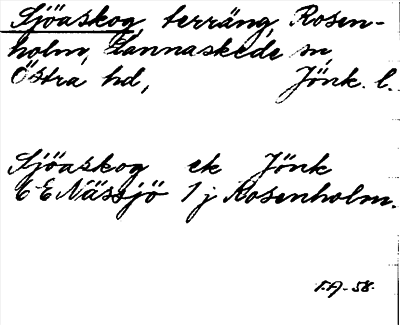 Sjöaskog, terräng, Rosen-
holm, Lannaskede sn,
Östra hd, Jönk. l.
Sjöaskog ek Jönk
6 E Nässjö 1 j Rosenholm.
F.A-58.